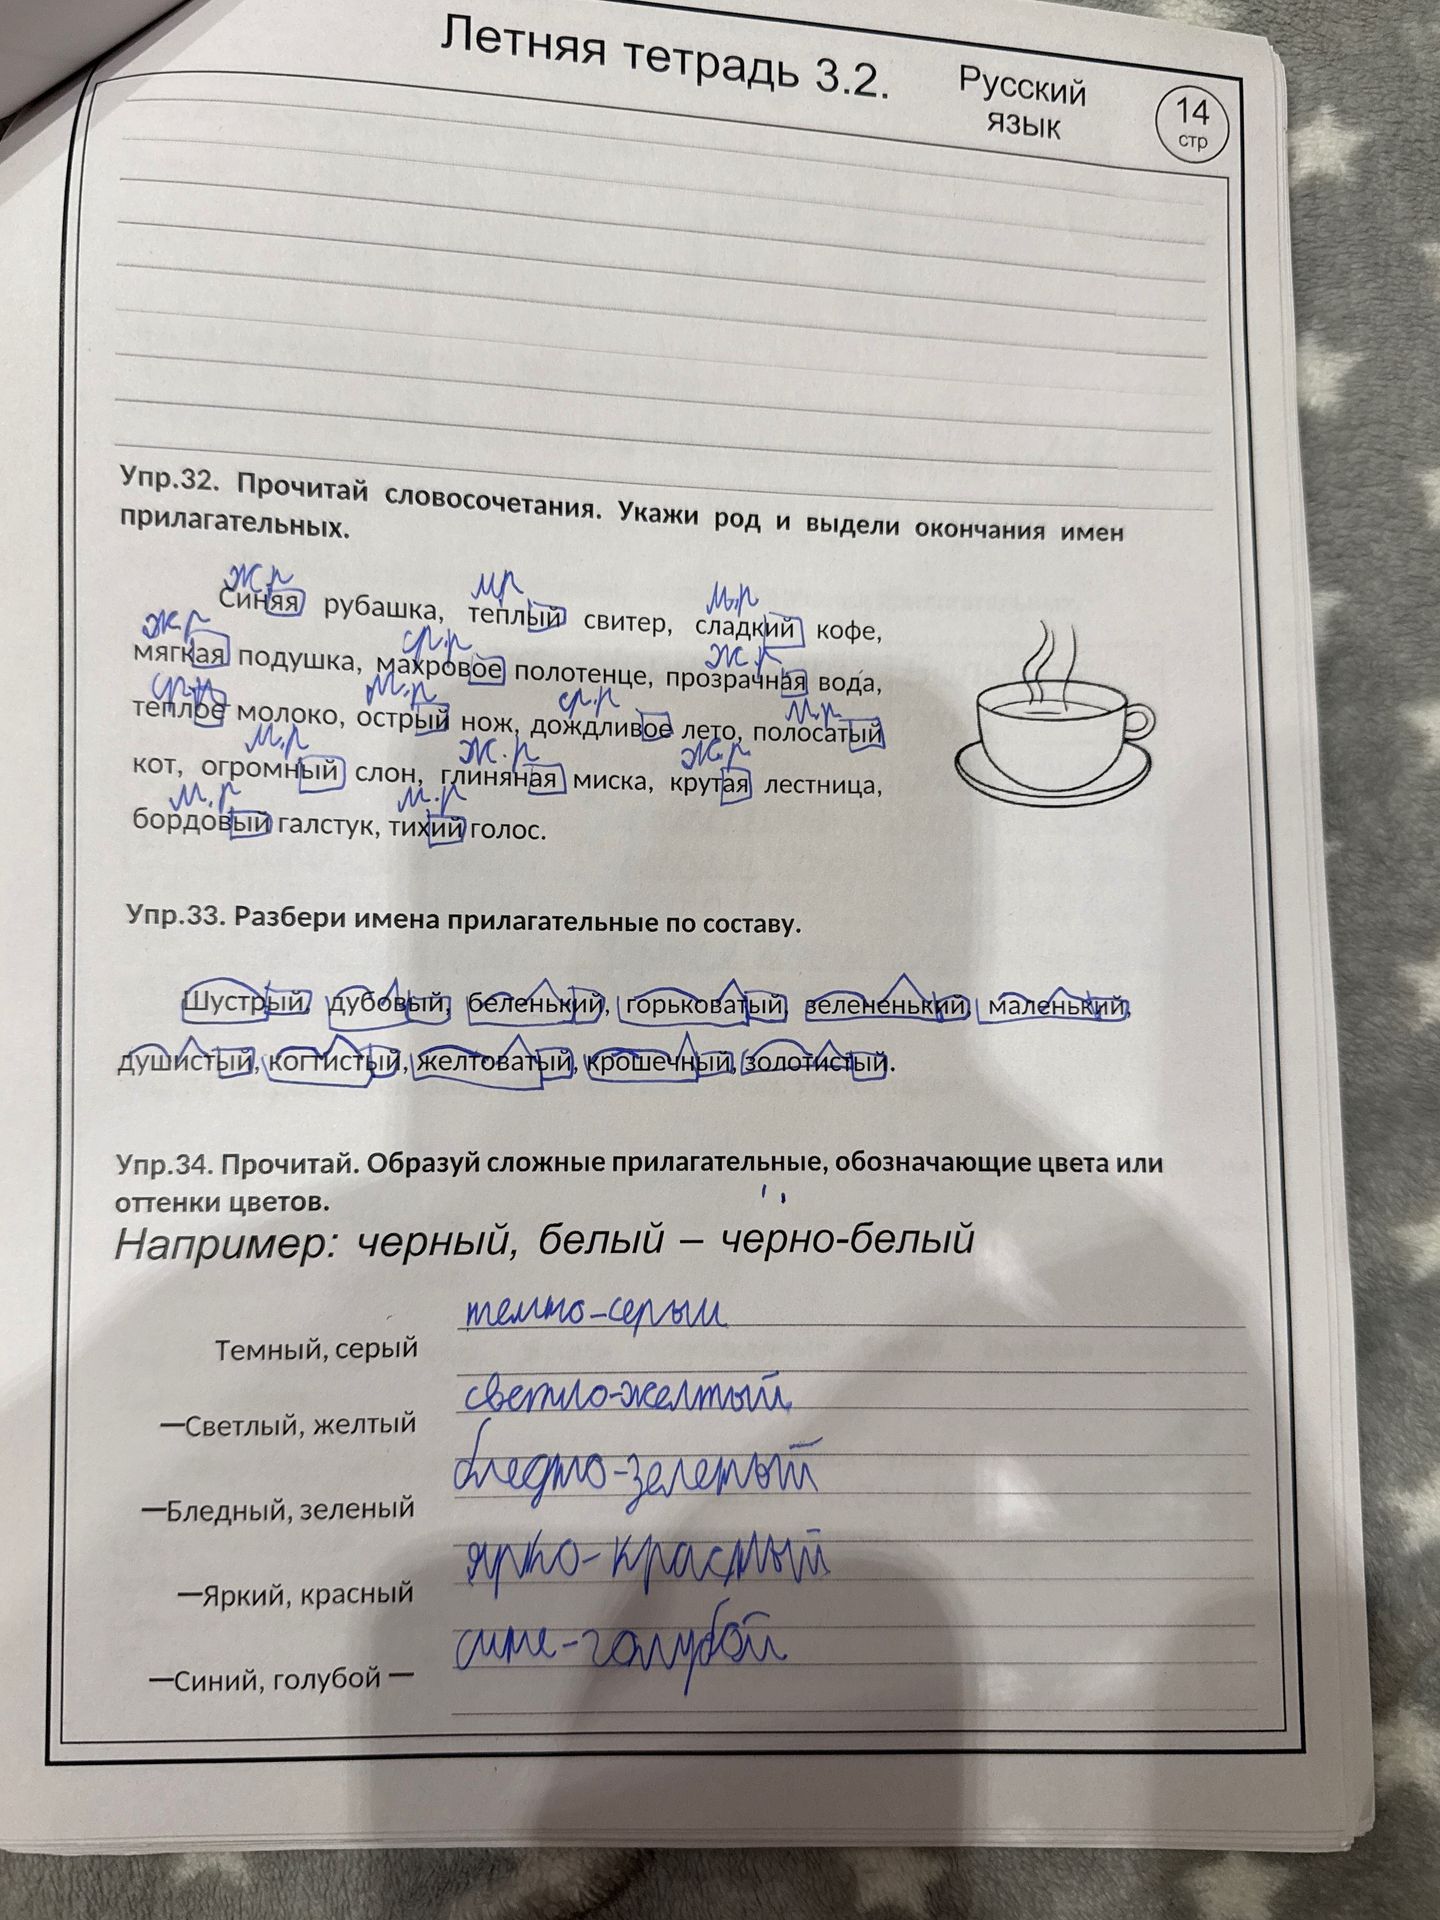 Летняя тетрадь 3.2.
Русский
язык
14
стр
Упр.32. Прочитай словосочетания. Укажи род и выдели окончания имен
прилагательных.
ж.р мр м.р
Синяя рубашка, теплый свитер, сладкий кофе,
ж.р ср.р ж.р
мягкая подушка, махровое полотенце, прозрачная вода,
ср.р м.р ср.р м.р
теплое молоко, острый нож, дождливое лето, полосатый
м.р ж.р ж.р
кот, огромный слон, глиняная миска, крутая лестница,
м.р м.р
бордовый галстук, тихий голос.
Упр.33. Разбери имена прилагательные по составу.
Шустрый, дубовый, беленький, горьковатый, зелененький, маленький,
душистый, когтистый, желтоватый, крошечный, золотистый.
Упр.34. Прочитай. Образуй сложные прилагательные, обозначающие цвета или
оттенки цветов.
Например: черный, белый – черно-белый
темно-серый
Темный, серый
светло-желтый
—Светлый, желтый
бледно-зеленый
—Бледный, зеленый
ярко-красный
—Яркий, красный
сине-голубой
—Синий, голубой —